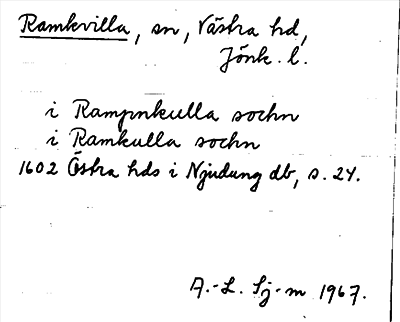 Ramkvilla, sn, Västra hd,
Jönk. l.
i Rampnkulla sochn
i Ramkulla sochn
1602 Östra hds i Njudung db, s. 24.
A.-L. Sj-m 1967.